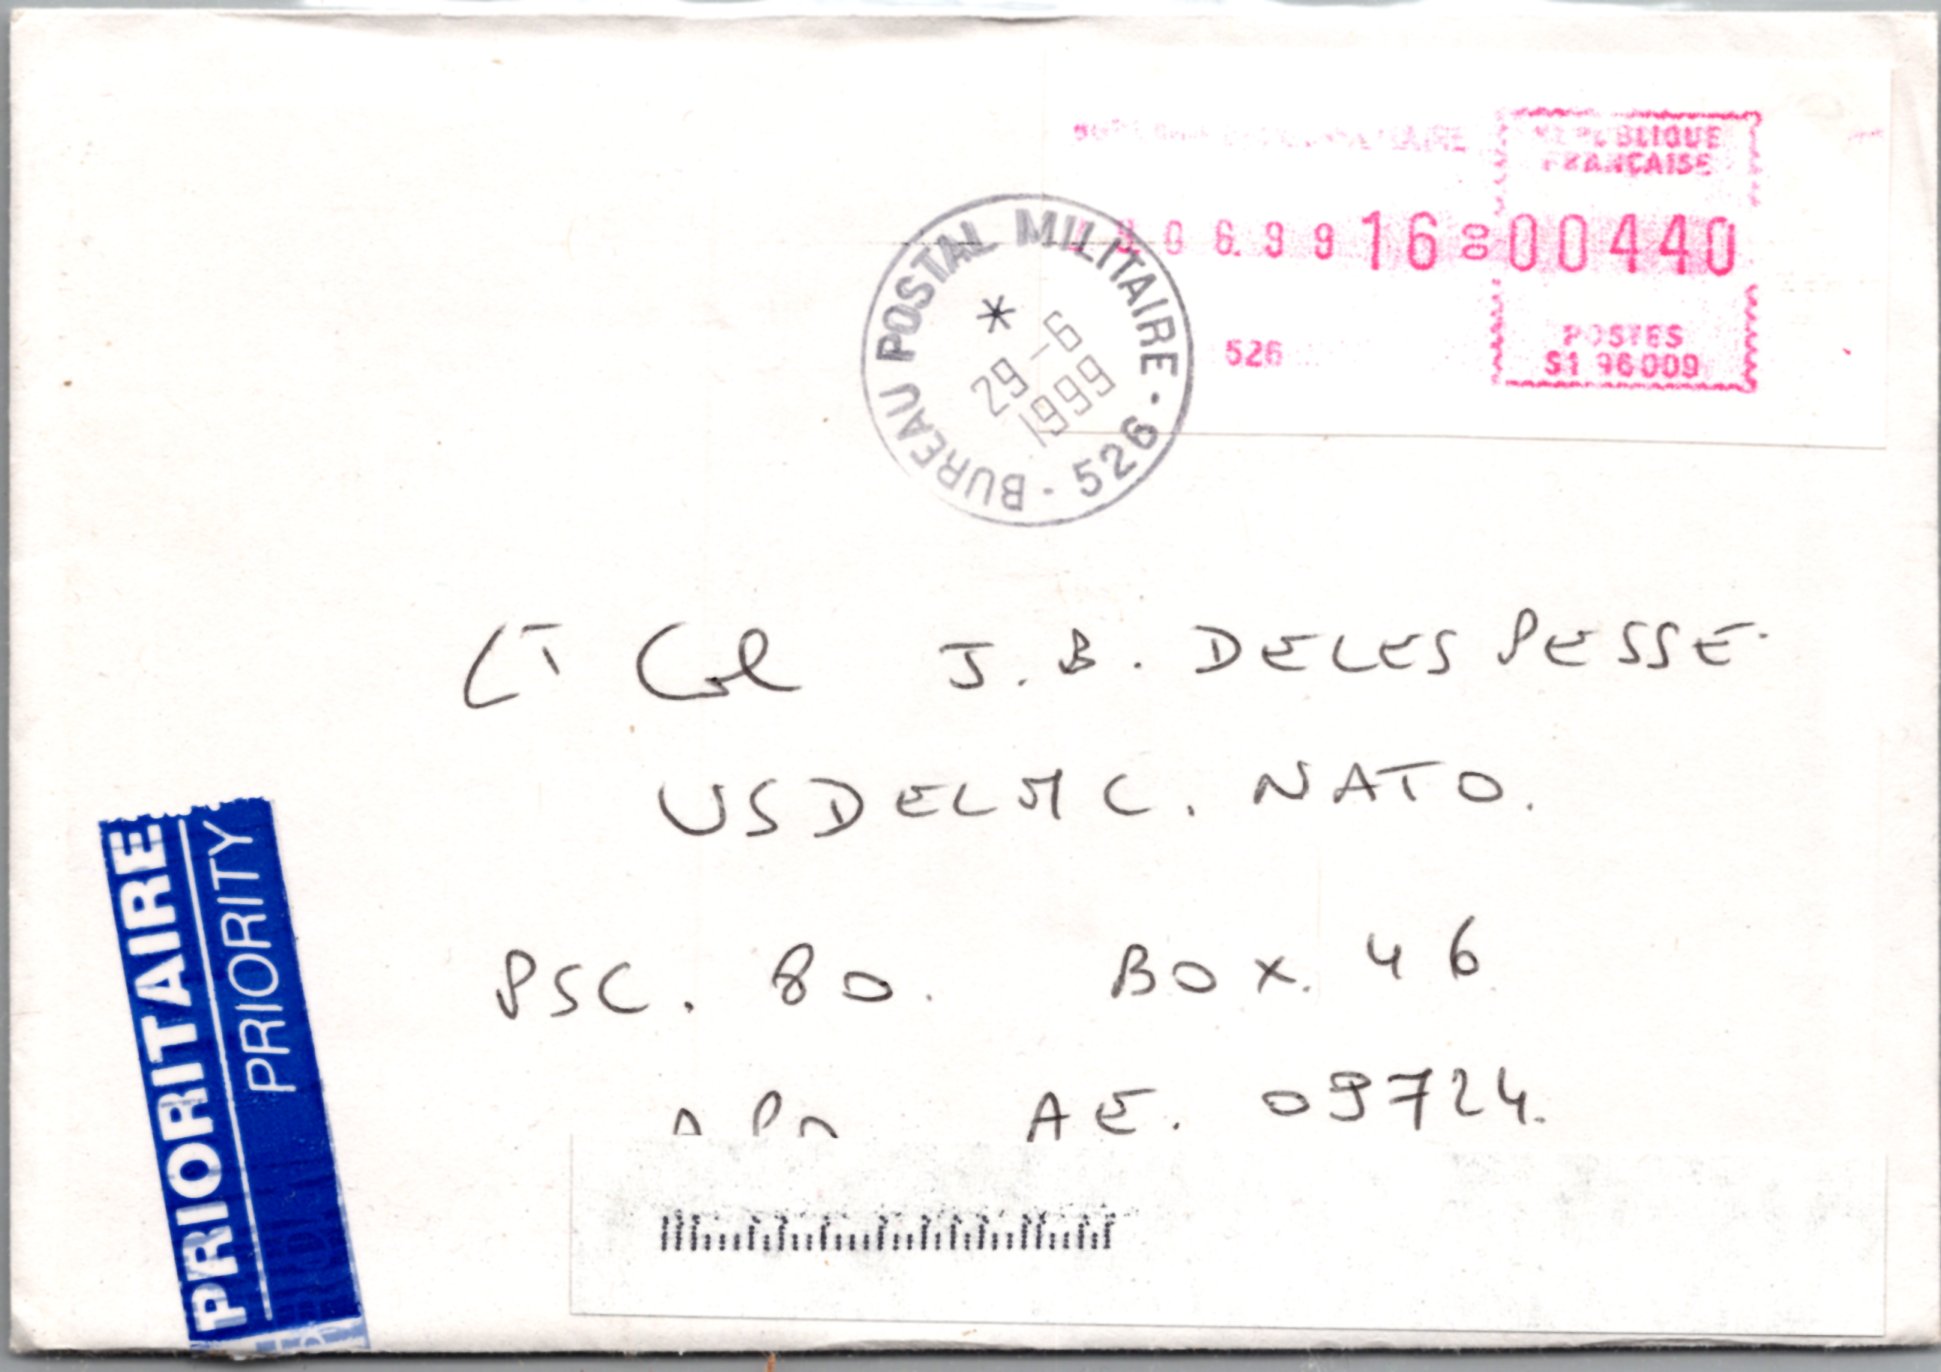 RÉPUBLIQUE
FRANÇAISE
06.99 16 00 00440
POSTES
S1 96009
526
BUREAU POSTAL MILITAIRE
*
29-6
1999
- 526 -
LT Col J.B. DELESPESSE
USDELMC. NATO.
PSC. 80. BOX. 46
AE. 09724.
PRIORITAIRE
PRIORITY